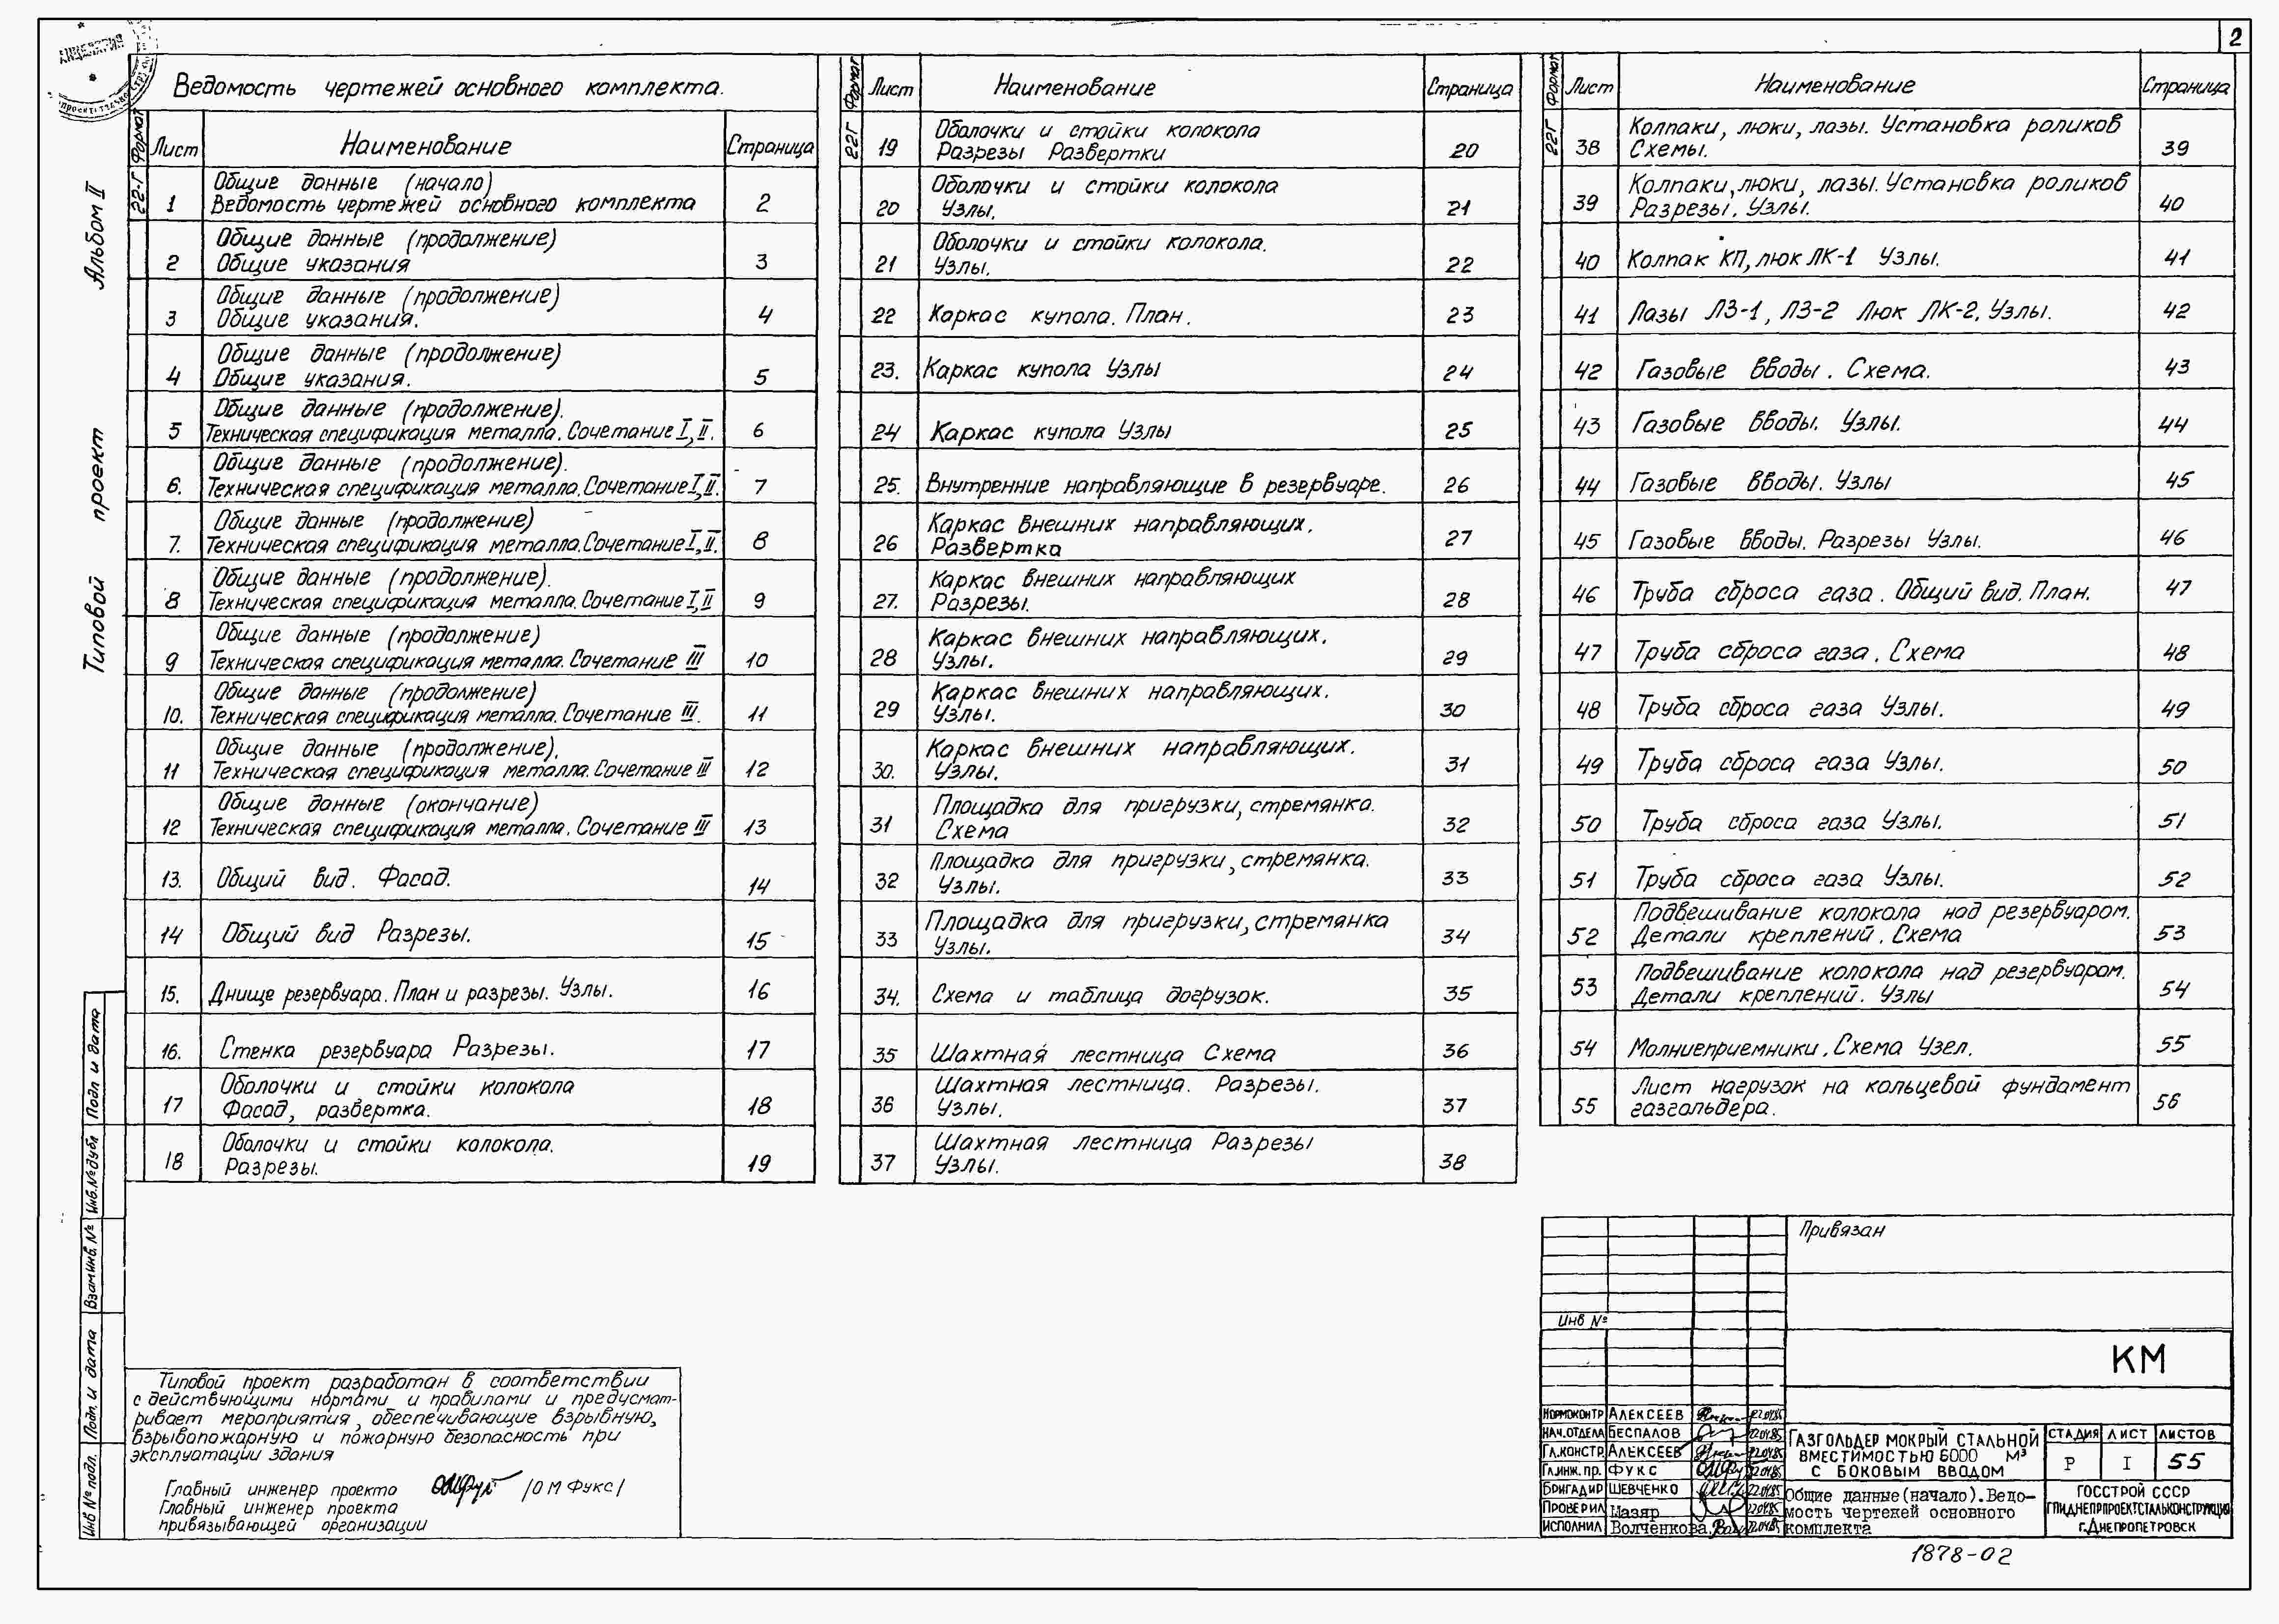 2
Ведомость чертежей основного комплекта.
Формат Лист Наименование Страница
22-Г 1 Общие данные (начало)
Ведомость чертежей основного комплекта 2
2 Общие данные (продолжение)
Общие указания 3
3 Общие данные (продолжение)
Общие указания. 4
4 Общие данные (продолжение)
Общие указания. 5
5 Общие данные (продолжение).
Техническая спецификация металла. Сочетание I, II. 6
6. Общие данные (продолжение).
Техническая спецификация металла. Сочетание I, II. 7
7. Общие данные (продолжение)
Техническая спецификация металла. Сочетание I, II. 8
8 Общие данные (продолжение).
Техническая спецификация металла. Сочетание I, II 9
9 Общие данные (продолжение)
Техническая спецификация металла. Сочетание III 10
10. Общие данные (продолжение)
Техническая спецификация металла. Сочетание III. 11
11 Общие данные (продолжение).
Техническая спецификация металла. Сочетание III 12
12 Общие данные (окончание)
Техническая спецификация металла. Сочетание III 13
13. Общий вид. Фасад. 14
14 Общий вид Разрезы. 15
15. Днище резервуара. План и разрезы. Узлы. 16
16. Стенка резервуара Разрезы. 17
17 Оболочки и стойки колокола
Фасад, развертка. 18
18 Оболочки и стойки колокола.
Разрезы. 19
Формат Лист Наименование Страница
22Г 19 Оболочки и стойки колокола
Разрезы Развертки 20
20 Оболочки и стойки колокола
Узлы. 21
21 Оболочки и стойки колокола.
Узлы. 22
22 Каркас купола. План. 23
23. Каркас купола Узлы 24
24 Каркас купола Узлы 25
25. Внутренние направляющие в резервуаре. 26
26 Каркас внешних направляющих.
Развертка 27
27. Каркас внешних направляющих
Разрезы. 28
28 Каркас внешних направляющих.
Узлы. 29
29 Каркас внешних направляющих.
Узлы. 30
30. Каркас внешних направляющих.
Узлы. 31
31 Площадка для пригрузки, стремянка.
Схема 32
32 Площадка для пригрузки, стремянка.
Узлы. 33
33 Площадка для пригрузки, стремянка
Узлы. 34
34. Схема и таблица догрузок. 35
35 Шахтная лестница Схема 36
36 Шахтная лестница. Разрезы.
Узлы. 37
37 Шахтная лестница Разрезы
Узлы. 38
Формат Лист Наименование Страница
22Г 38 Колпаки, люки, лазы. Установка роликов
Схемы. 39
39 Колпаки, люки, лазы. Установка роликов
Разрезы. Узлы. 40
40 Колпак КП, люк ЛК-1 Узлы. 41
41 Лазы ЛЗ-1, ЛЗ-2 Люк ЛК-2. Узлы. 42
42 Газовые вводы. Схема. 43
43 Газовые вводы. Узлы. 44
44 Газовые вводы. Узлы 45
45 Газовые вводы. Разрезы Узлы. 46
46 Труба сброса газа. Общий вид. План. 47
47 Труба сброса газа. Схема 48
48 Труба сброса газа Узлы. 49
49 Труба сброса газа Узлы. 50
50 Труба сброса газа Узлы. 51
51 Труба сброса газа Узлы. 52
52 Подвешивание колокола над резервуаром.
Детали креплений. Схема 53
53 Подвешивание колокола над резервуаром.
Детали креплений. Узлы 54
54 Молниеприемники. Схема Узел. 55
55 Лист нагрузок на кольцевой фундамент
газгольдера. 56
Типовой проект Альбом II
Инв № подл. Подп. и дата Взам инв. № Инв. № дубл Подп и дата
Типовой проект разработан в соответствии
с действующими нормами и правилами и предусмат-
ривает мероприятия, обеспечивающие взрывную,
взрывопожарную и пожарную безопасность при
эксплуатации здания
Главный инженер проекта /О М Фукс/
Главный инженер проекта
привязывающей организации
Привязан
Инв №
КМ
Нормоконтр Алексеев 22.04.85
Нач. отдела Беспалов 22.04.85
Гл. констр. Алексеев 22.04.85
Гл. инж. пр. Фукс 22.04.85
Бригадир Шевченко 22.04.85
Проверил Мазяр 22.04.85
Исполнил Волченкова 22.04.85
Газгольдер мокрый стальной
вместимостью 6000 м³
с боковым вводом
Общие данные (начало). Ведо-
мость чертежей основного
комплекта
Стадия Лист Листов
Р I 55
ГОССТРОЙ СССР
ГПИ ДНЕПРПРОЕКТСТАЛЬКОНСТРУКЦИЯ
г. Днепропетровск
1878-02